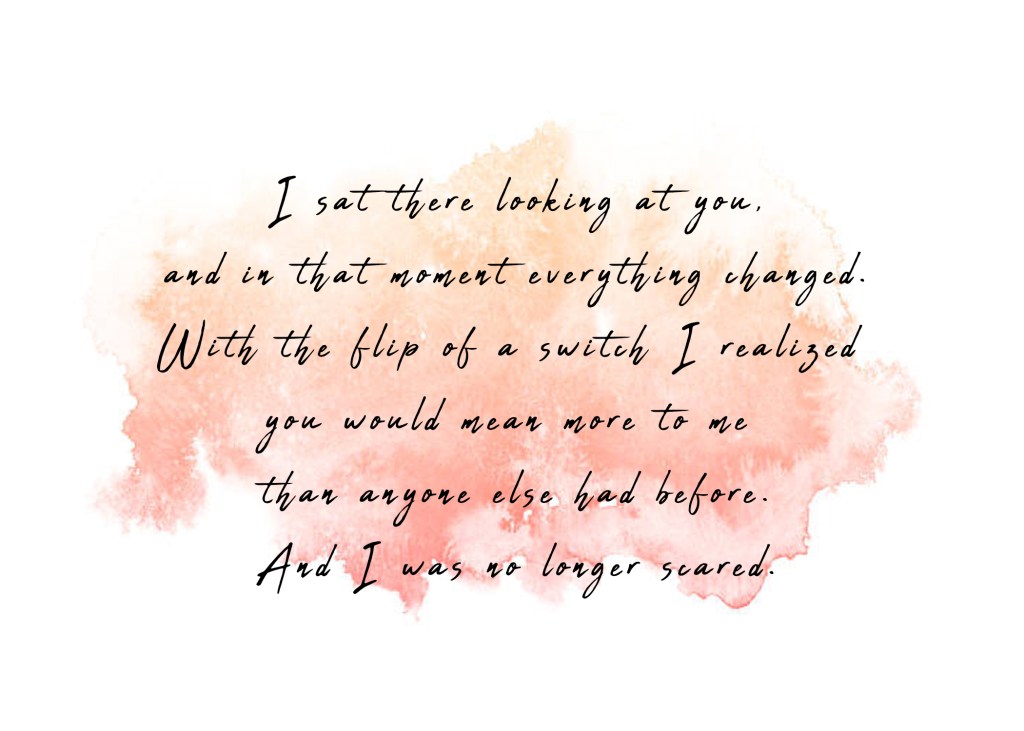 I sat there looking at you,
and in that moment everything changed.
With the flip of a switch I realized
you would mean more to me
than anyone else had before.
And I was no longer scared.